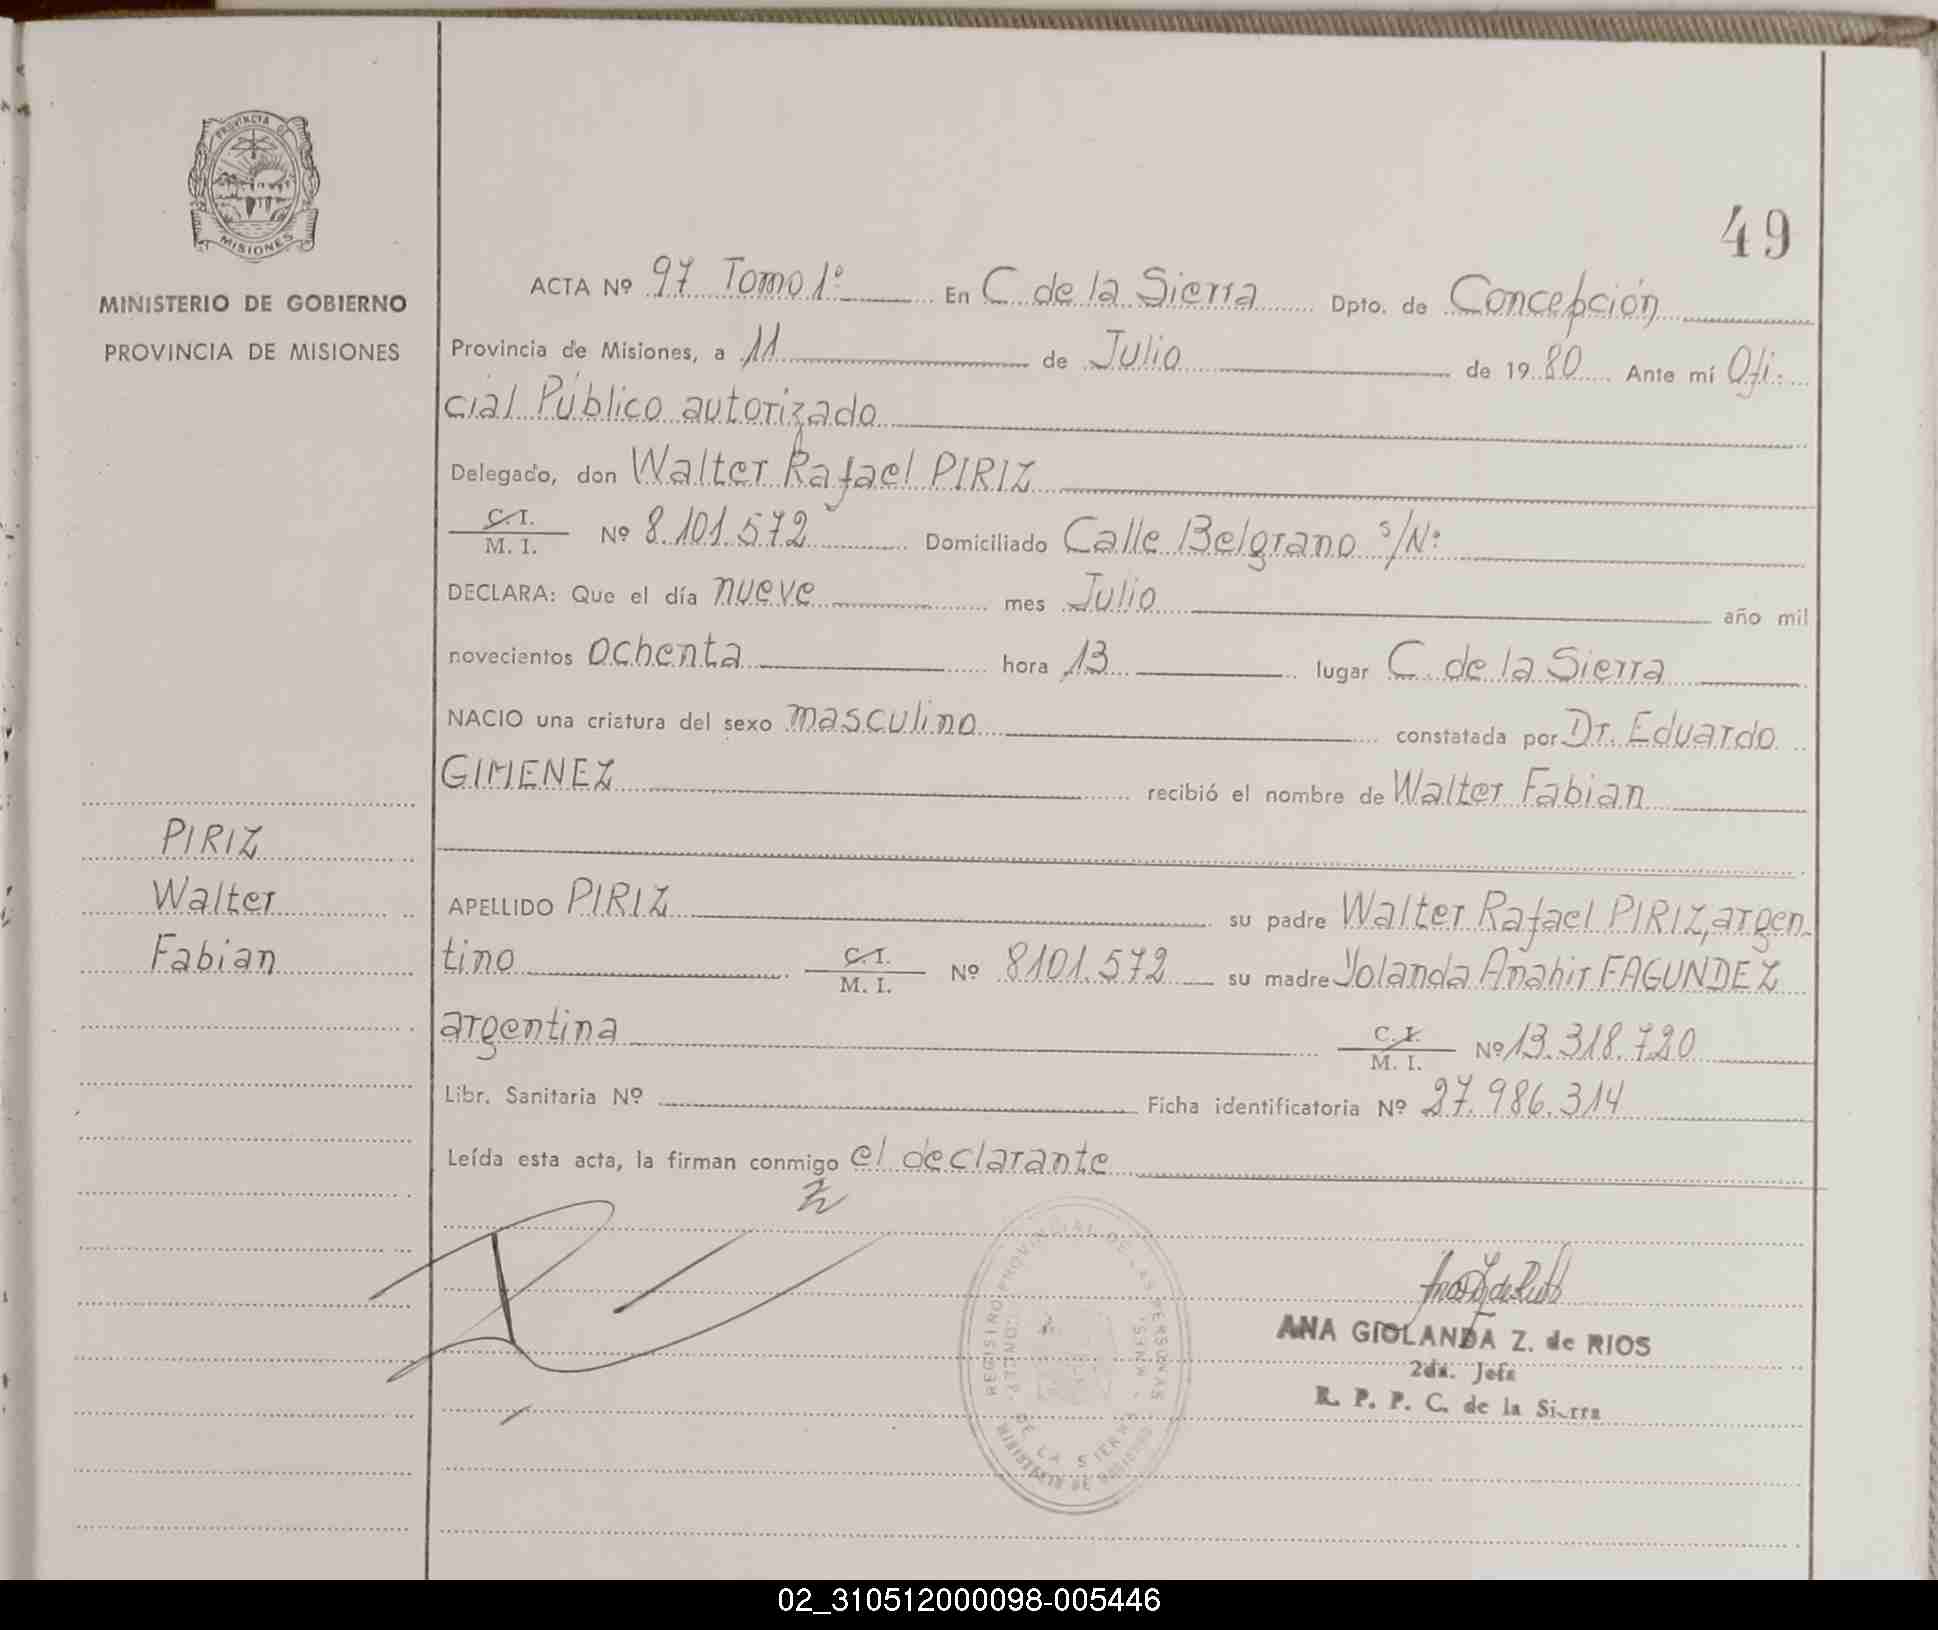 PROVINCIA DE
MISIONES
MINISTERIO DE GOBIERNO
PROVINCIA DE MISIONES
PIRIZ
Walter
Fabian
49
ACTA Nº 97 Tomo 1º En C. de la Sierra Dpto. de Concepción
Provincia de Misiones, a 11 de Julio de 1980 Ante mí Ofi-
cial Público autorizado
Delegado, don Walter Rafael PIRIZ
C.I.
M. I. Nº 8.101.572 Domiciliado Calle Belgrano s/Nº
DECLARA: Que el día nueve mes Julio año mil
novecientos ochenta hora 13 lugar C. de la Sierra
NACIO una criatura del sexo masculino constatada por Dr. Eduardo
GIMENEZ recibió el nombre de Walter Fabian
APELLIDO PIRIZ su padre Walter Rafael PIRIZ, argen-
tino C.I.
M. I. Nº 8101.572 su madre Yolanda Anahir FAGUNDEZ
argentina C.I.
M. I. Nº 13.318.720
Libr. Sanitaria Nº Ficha identificatoria Nº 27.986.314
Leída esta acta, la firman conmigo el declarante
REGISTRO PROVINCIAL DE LAS PERSONAS
DE LA SIERRA
MINISTERIO DE GOBIERNO
ANA GIOLANDA Z. de RIOS
2da. Jefa
R. P. P. C. de la Sierra
02_310512000098-005446